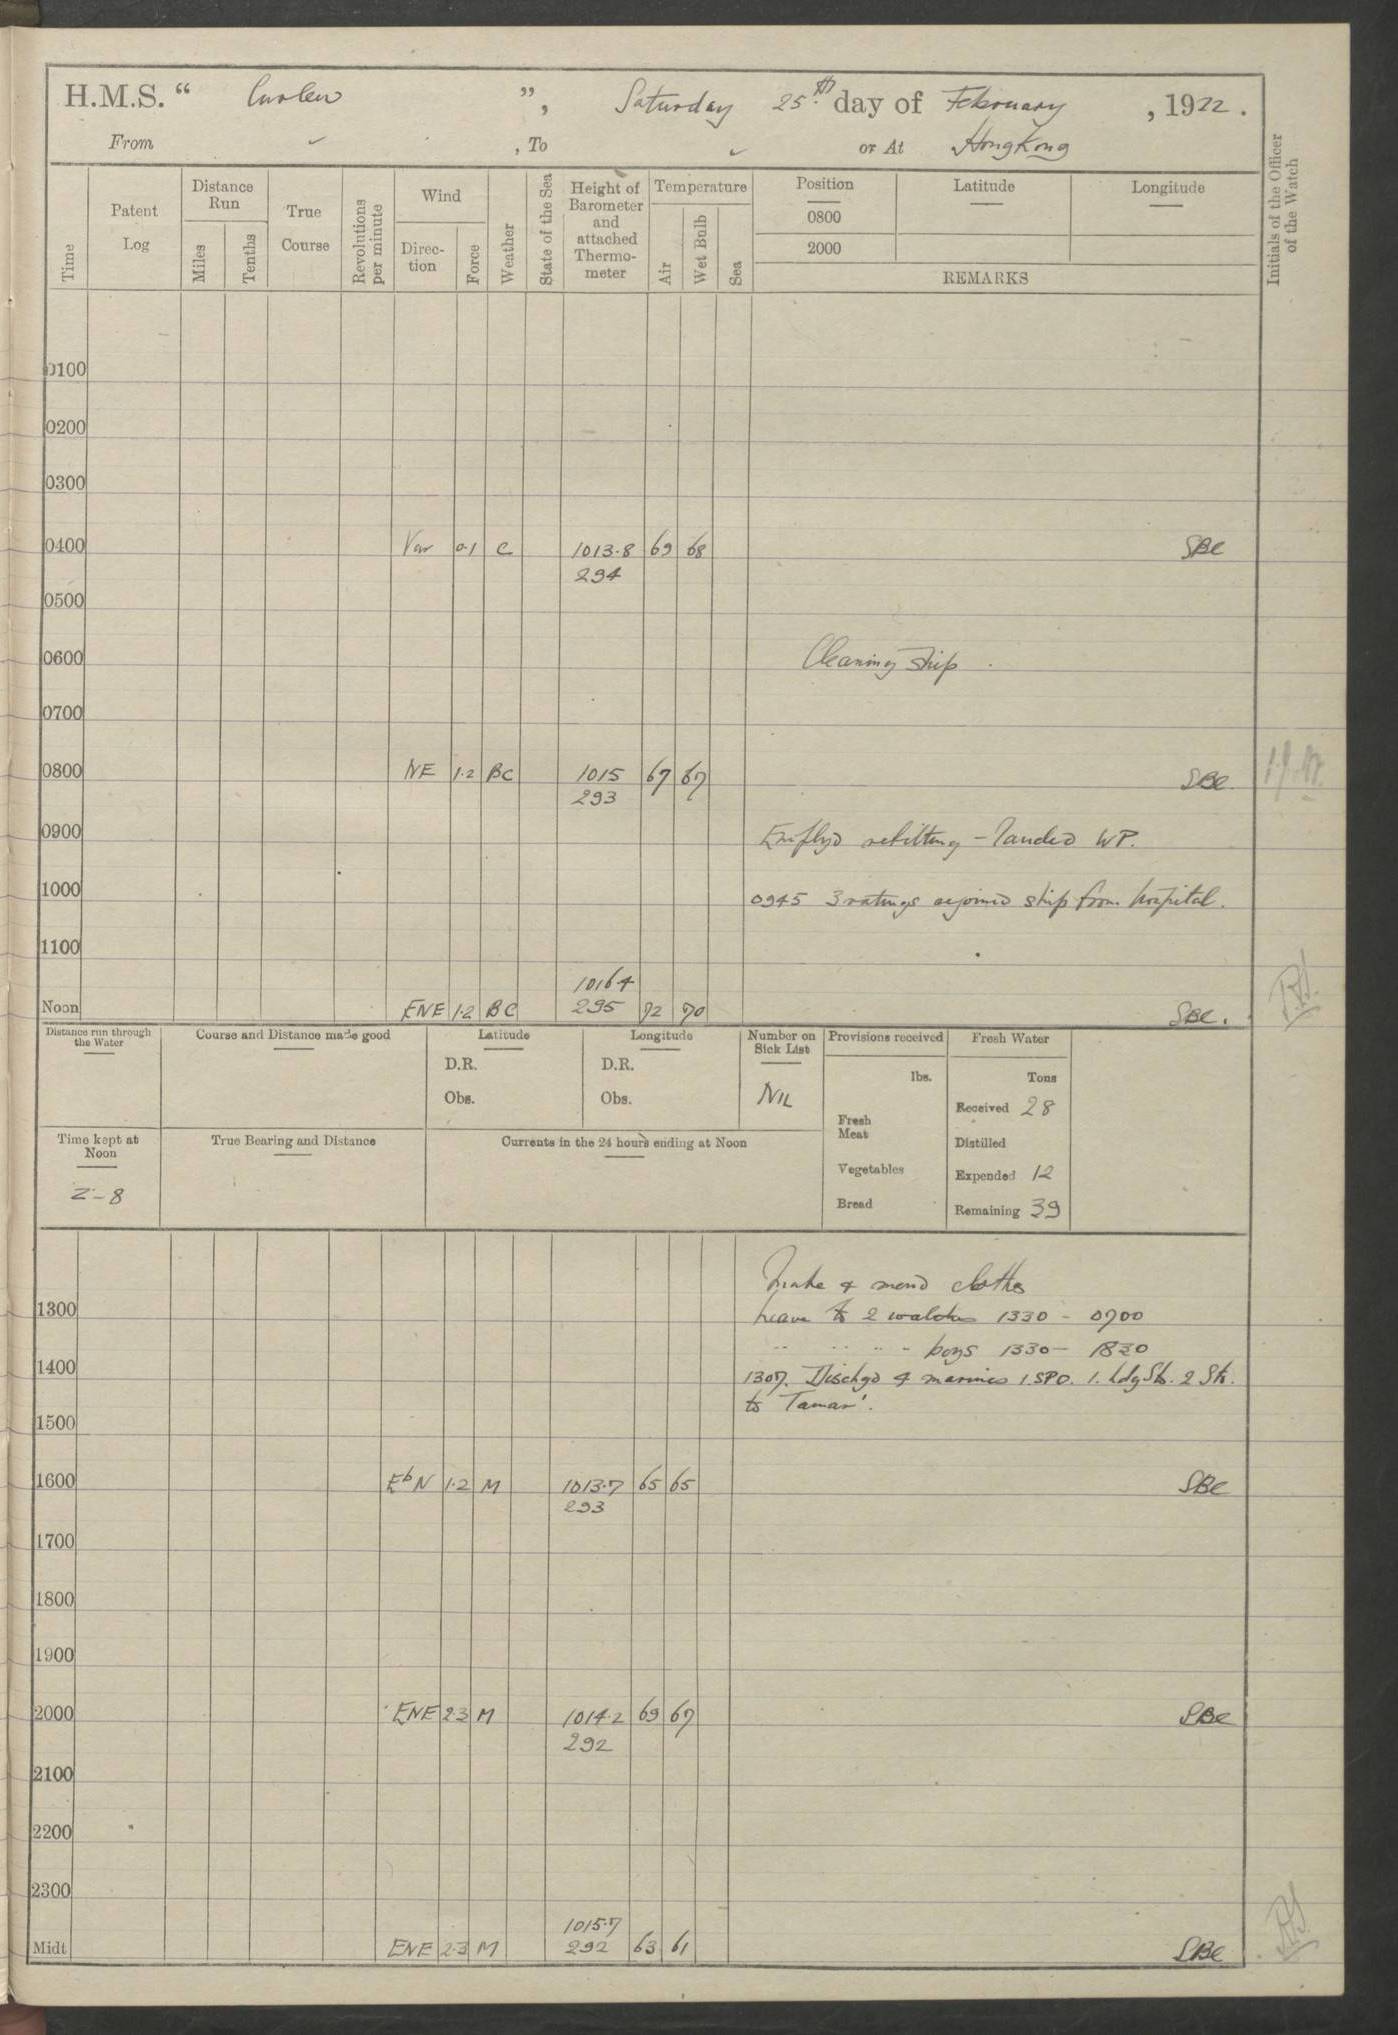 H.M.S. “ Curlew ”, Saturday 25th day of February, 1922.
From ✓ , To ✓ or At HongKong
Time
Patent Log
Distance Run
Miles
Tenths
True Course
Revolutions per minute
Wind
Direc-tion
Force
Weather
State of the Sea
Height of Barometer and attached Thermo-meter
Temperature
Air
Wet Bulb
Sea
Position
Latitude
Longitude
0800
2000
REMARKS
Initials of the Officer of the Watch
0100
0200
0300
0400 Var 0.1 C 1013.8 69 68 SBC
294
0500
0600 Cleaning ship.
0700
0800 NE 1.2 BC 1015 67 67 SBC
293
0900 Emplyd refitting - landed WP.
1000 0945 3 ratings rejoined ship from hospital.
1100
1016.4
Noon ENE 1.2 BC 295 72 70 SBC.
Distance run through the Water
Course and Distance made good
Latitude
D.R.
Obs.
Longitude
D.R.
Obs.
Number on Sick List
NIL
Provisions received
lbs.
Fresh Meat
Vegetables
Bread
Fresh Water
Tons
Received 28
Distilled
Expended 12
Remaining 39
Time kept at Noon
Z-8
True Bearing and Distance
Currents in the 24 hours ending at Noon
Make & mend clothes
1300 Leave to 2 watches 1330 - 0700
" " " " boys 1330 - 1830
1400 1307. Dischgd 4 marines 1.SPO. 1. LdgSto. 2 Sto.
to 'Tamar'.
1500
1600 EbN 1.2 M 1013.7 65 65 SBC
293
1700
1800
1900
2000 ENE 2.3 M 1014.2 69 67 SBC
292
2100
2200
2300
1015.7
Midt ENE 2.3 M 292 63 61 SBC